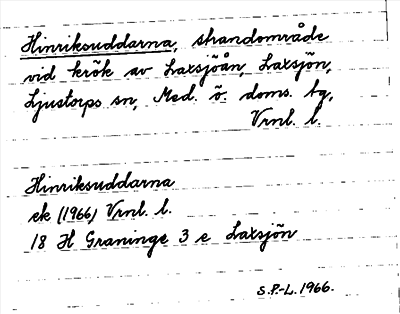 Hinriksuddarna, strandområde
vid krök av Laxsjöån, Laxsjön,
Ljustorps sn, Med. ö. doms. tg,
Vrnl. l.
Hinriksuddarna
ek (1966) Vrnl. l.
18 H Graninge 3 e Laxsjön
S.P.-L. 1966.